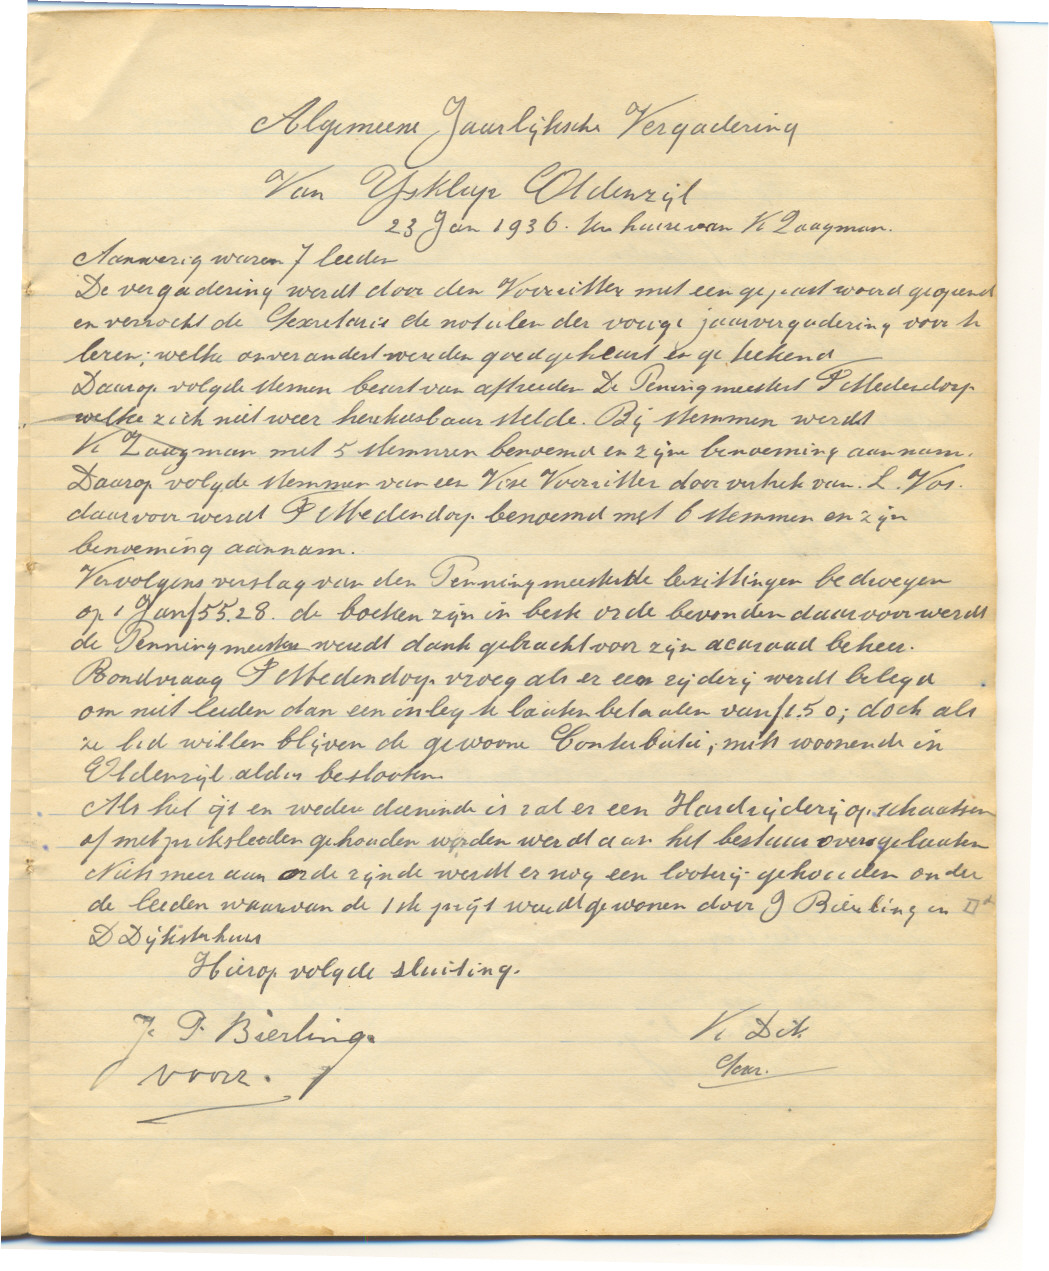 Algemeene Jaarlijksche Vergadering
Van IJsklup Oldenzijl
23 Jan 1936. ten huize van K Zaagman.
Aanwezig waren 7 leeden
De vergadering werdt door den Voorzitter met een gepast woord geopend
en verzocht de Secretaris de notulen der vorige jaarvergadering voor te
lezen; welke onverandert werden goedgekeurt en geteekend
Daarop volgde stemen beurt van aftreeden De Peningmeestert F Medendorp
welke zich niet weer herkiesbaar stelde. Bij stemmen werdt
K Zaagman met 5 stemmen benoemd en zijne benoeming aannam.
Daarop volgde stemmen van een Vise Voorzitter door vertrek van. L. Vos.
daarvoor werdt F Medendorp benoemd met 6 stemmen en zijn
benoeming aannam.
Vervolgens verslag van den Penningmeester de bezittingen bedroegen
op 1 Jan f 55.28. de boeken zijn in beste orde bevonden daarvoor werdt
de Penningmeester werdt dank gebracht voor zijn acuraad beheer.
Rondvraag F Medendorp vroeg als er een rijderij werdt belegd
om niet leeden dan een inleg te laaten betaalen van f 1.50; doch als
ze lid willen blijven de gewoone Contributie, mits woonende in
Oldenzijl. aldus beslooten
Als het ijs en weder dienende is zal er een Hardrijderij op schaatsen
of met priksleeden gehouden worden werdt aan het bestuur overgelaaten
Niets meer aan orde zijnde werdt er nog een looterij gehouden onder
de leeden waarvan de 1ste prijs werdt gewonen door J Bierling en II de
D Dijksterhuis
Hierop volgde sluiting.
J. P. Bierling. K Dik
voorz. Secr.